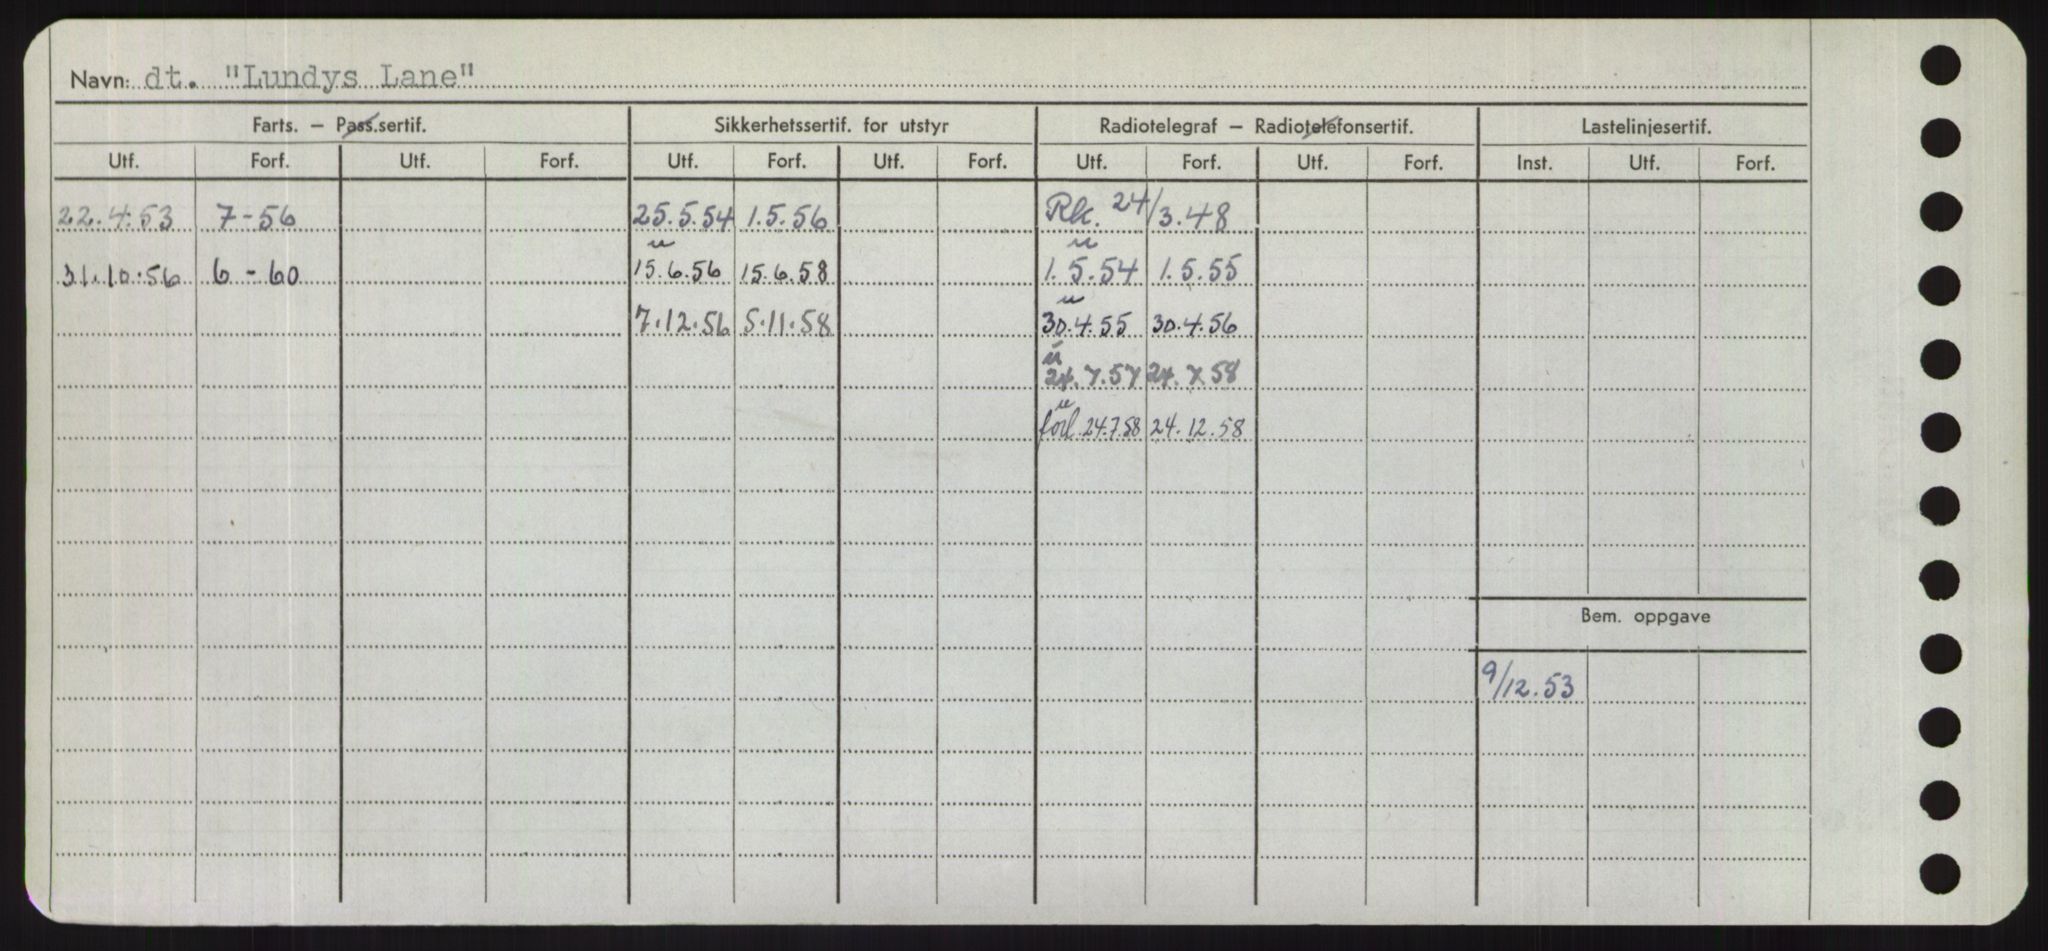 Navn: dt. "Lundys Lane"
Farts. – Pass.sertif. Sikkerhetssertif. for utstyr Radiotelegraf – Radiotelefonsertif. Lastelinjesertif.
Utf. Forf. Utf. Forf. Utf. Forf. Utf. Forf. Utf. Forf. Utf. Forf. Inst. Utf. Forf.
22.4.53 7-56 25.5.54 1.5.56 Rk. 24/3.48
u u
31.10.56 6-60 15.6.56 15.6.58 1.5.54 1.5.55
u
7.12.56 5.11.58 30.4.55 30.4.56
u
24.7.57 24.7.58
u
forl. 24.7.58 24.12.58
Bem. oppgave
9/12.53